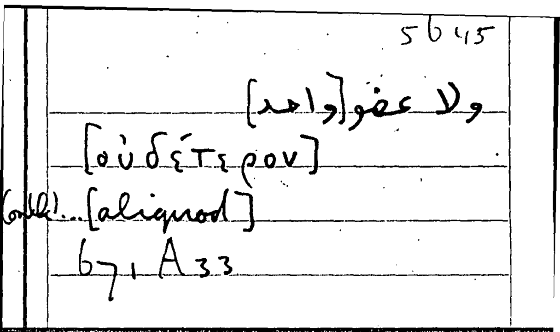 5645
ولا عضو [واحد]
[οὐδέτερον]
... [aliquod]
671 A 33